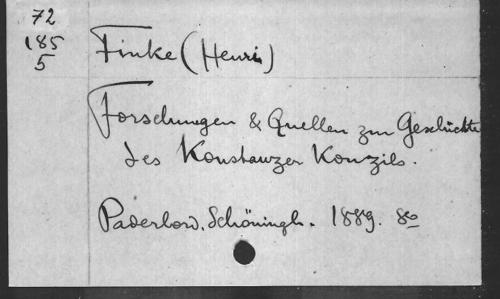 72
185
5
Finke (Henri)
Forschungen & Quellen zur Geschichte
des Konstanzer Konzils.
Paderborn. Schöningh. 1889. 8º